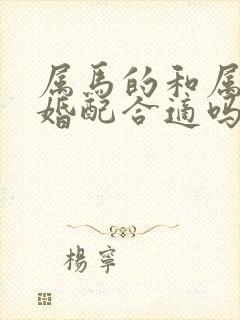 属马的和属
婚配合适吗
楊寧